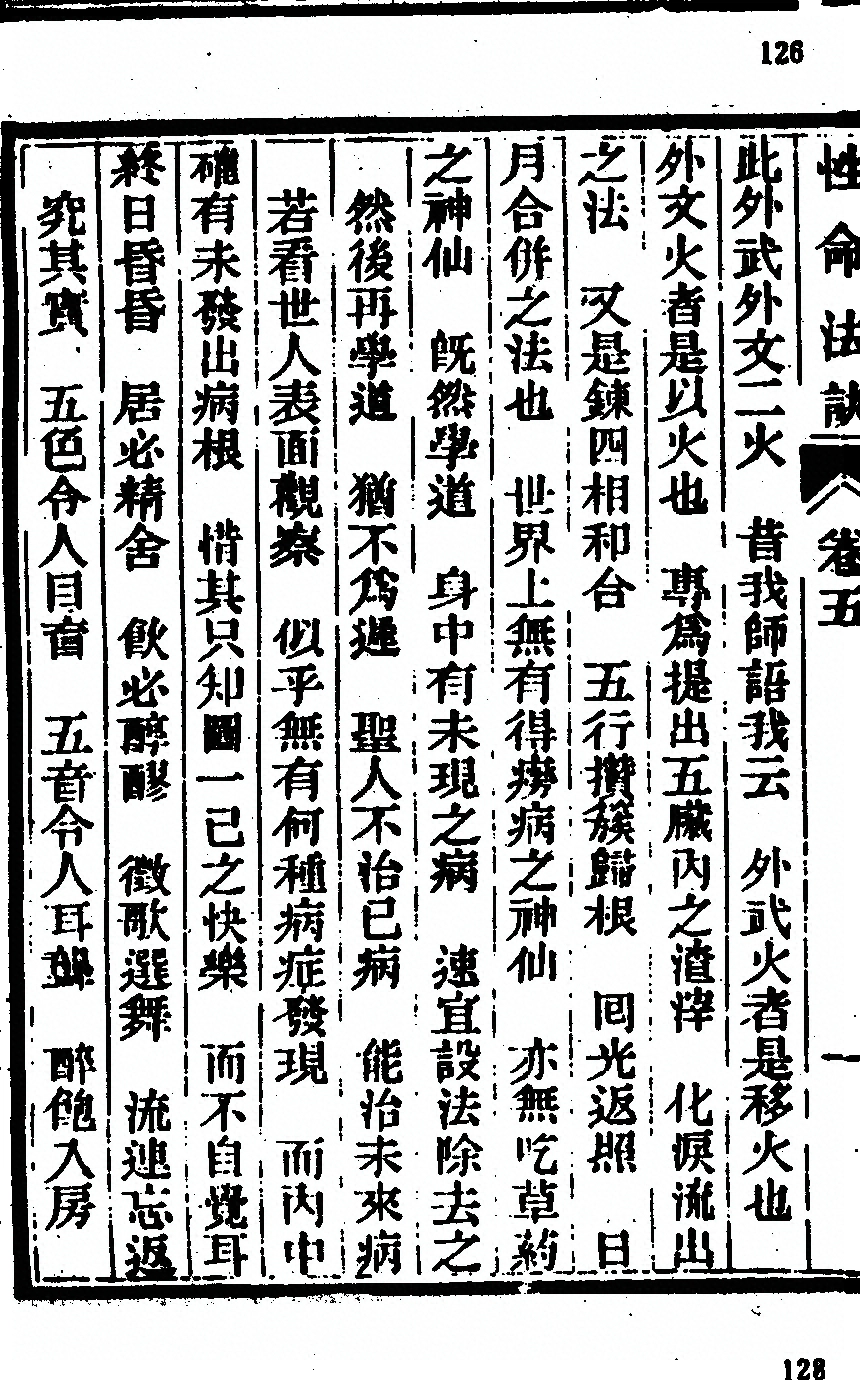 126
性命法訣 卷五 一
此外武外文二火 昔我師語我云 外武火者是移火也
外文火者是以火也 專爲提出五臟內之渣滓 化淚流出
之法 又是鍊四相和合 五行攢簇歸根 回光返照 日
月合併之法也 世界上無有得癆病之神仙 亦無吃草葯
之神仙 旣然學道 身中有未現之病 速宜設法除去之
然後再學道 猶不爲遲 聖人不治已病 能治未來病
若看世人表面觀察 似乎無有何種病症發現 而內中
確有未發出病根 惜其只知圖一己之快樂 而不自覺耳
終日昏昏 居必精舍 飲必醇醪 徵歌選舞 流連忘返
究其實 五色令人目盲 五音令人耳聾 醉飽入房
128